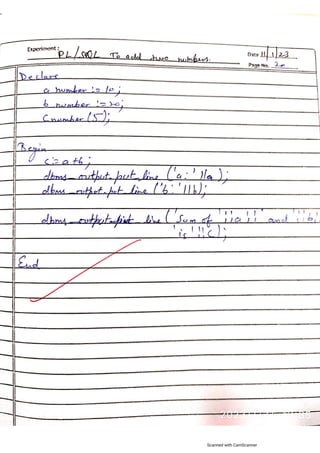 Experiment : PL/SQL To add two numbers.
Date 11/1/23
Page No. 20
Declare
a number := 10;
b number := 20;
C number (5);
Begin
C := a + b;
dbms_output.put_line ('a:' ||a);
dbms_output.put_line ('b:' ||b);
dbms_output.put_line ('Sum of '||a||' and '||b||
' is '||C);
End
Scanned with CamScanner